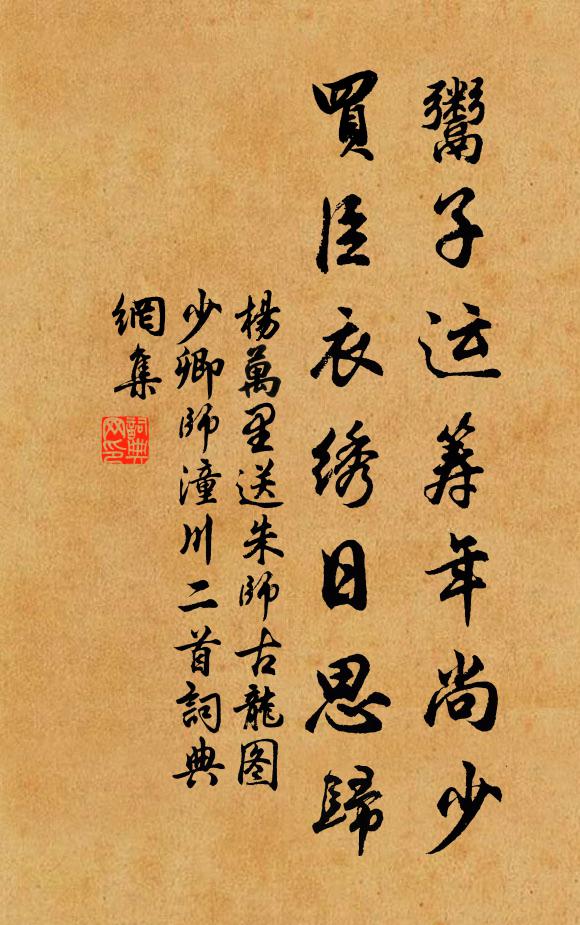 鬻子运筹年尚少
買臣衣绣日思歸
楊萬里送朱師古龍图
少卿師潼川二首詞典
網集
詞典
网印